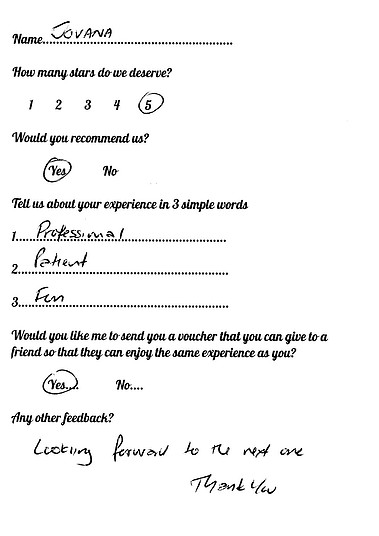 Name.... JOVANA
How many stars do we deserve?
1 2 3 4 5
Would you recommend us?
Yes No
Tell us about your experience in 3 simple words
1.... Professional
2.... Patient
3.... Fun
Would you like me to send you a voucher that you can give to a
friend so that they can enjoy the same experience as you?
Yes.... No....
Any other feedback?
Looking forward to the next one
Thank you